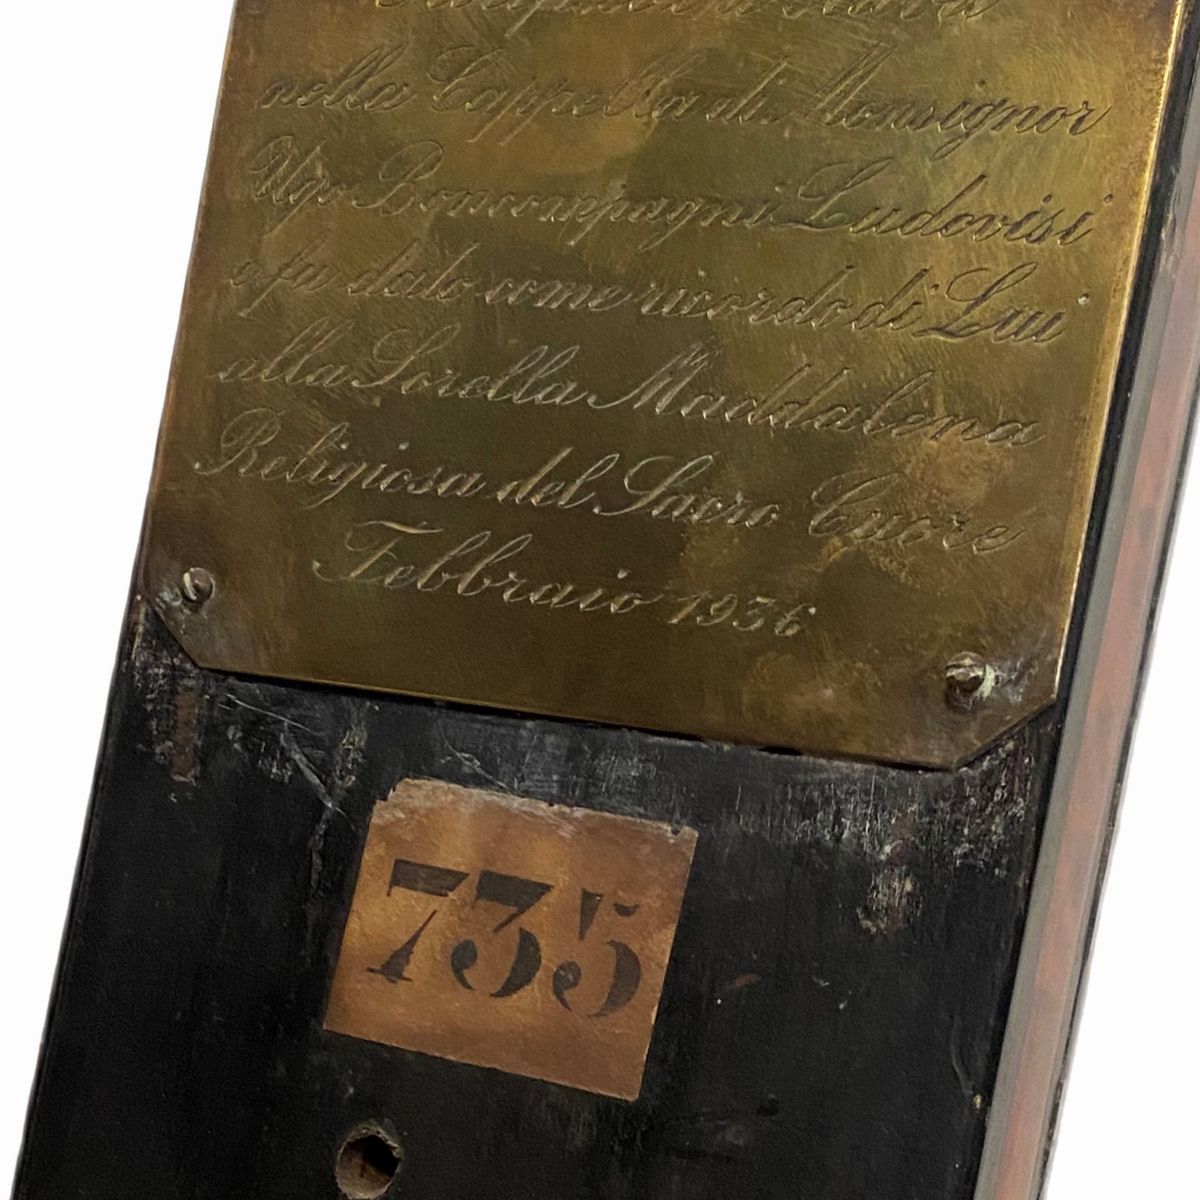 nella Cappella di Monsignor
Ugo Boncompagni Ludovisi
e fu dato come ricordo di Lui
alla Sorella Maddalena
Religiosa del Sacro Cuore
Febbraio 1936
735